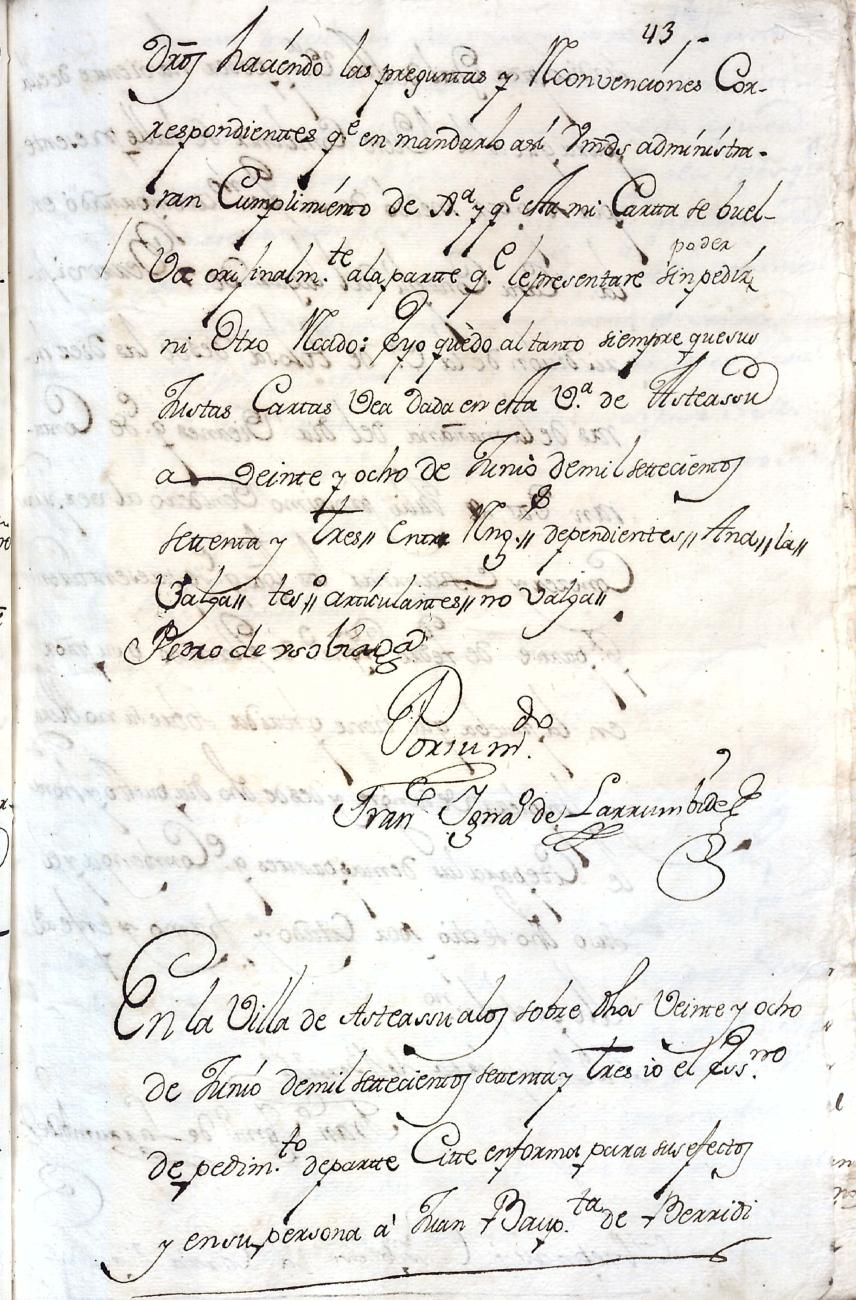 43,,
Dros haciendo las preguntas y Rconvenciónes Cor-
respondientes qe en mandarlo así Vmds administra-
ran Cumplimiento de Ja. y qe esta mi Cartta se buel-
poder
Va orijinalm.te ala partte q.e lepresentare sin pedir
ni Otro Rcado: Eyo quedo al tanto siempre que sus
Justas Carttas Vea dada en esta V.a de Asteassu
a veinte y ocho de Junio de mil settecientos
settenta y tres,, Entre Rng.s,, dependientes,, And,, la,,
Valga,, tes.do artículantes,, no valga,,
Pedro de ysobiaga
Por su m.do
Franco Ignao de Larrumbide
En la Villa de Asteassu alos sobre dhos Veinte y ocho
de Junio de mil settecientos settenta y tres io el Ess.no
de pedim.to departte Citte en forma para sus efectos
y en su persona a Juan Baup.ta de Berridi